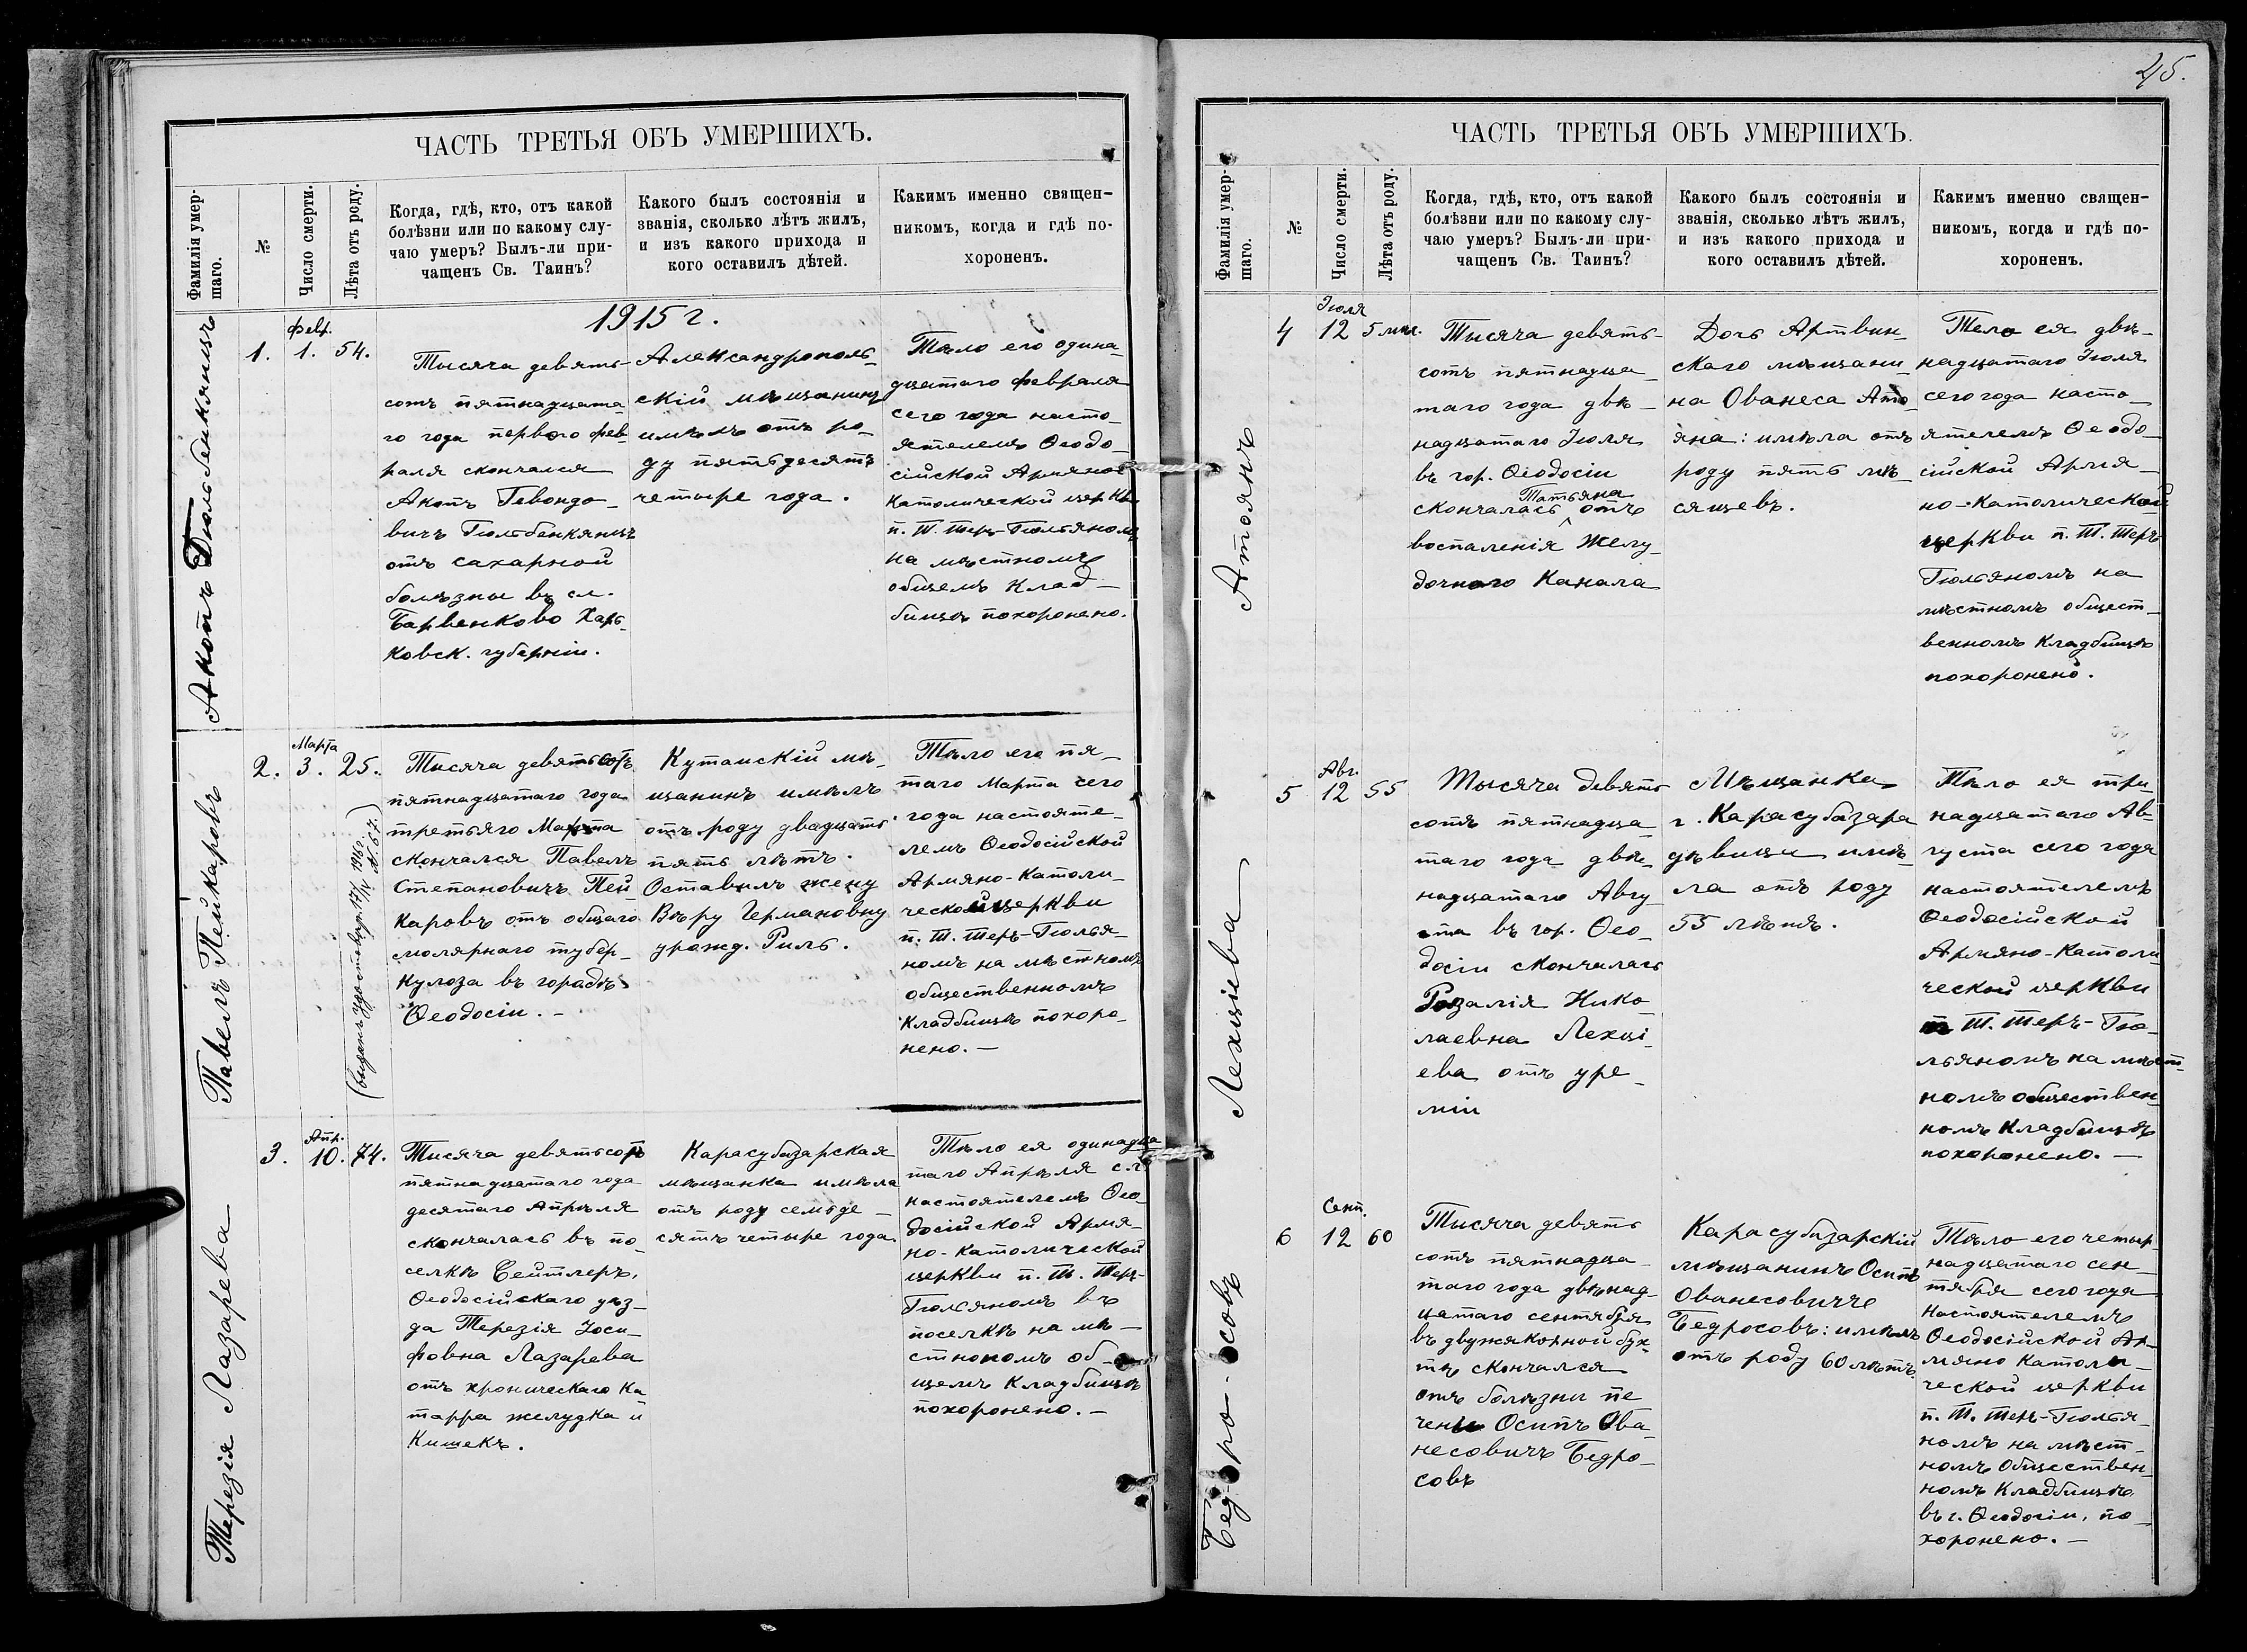 45.
ЧАСТЬ ТРЕТЬЯ ОБЪ УМЕРШИХЪ.
Фамилія умер-
шаго.
№
Число смерти.
Лѣта отъ роду.
Когда, гдѣ, кто, отъ какой
болѣзни или по какому слу-
чаю умеръ? Былъ-ли при-
чащенъ Св. Таинъ?
Какого былъ состоянія и
званія, сколько лѣтъ жилъ,
и изъ какого прихода и
кого оставилъ дѣтей.
Каким​ъ именно священ-
никомъ, когда и гдѣ по-
хороненъ.
1915 г.
Акопъ Гюльбенкянцъ
1.
Февр.
1.
54.
Тысяча девять-
сотъ пятнадцата-
го года перваго фев-
раля скончался
Акопъ Гевондо-
вичъ Гюльбенкянцъ
отъ сахарной
болѣзны въ сл.
Барвенково Харь-
ковск. губерніи.
Александрополь-
скій мѣщанинъ
имѣлъ отъ ро-
ду пятьдесятъ
четыре года.
Тѣло его одина-
дцатаго февраля
сего года насто-
ятелемъ Ѳеодо-
сійской Армяно-
католической церкви
п. Т. Теръ-Гюльяномъ
на мѣстномъ
общемъ клад-
бищѣ похоронено.
Павелъ Пейкаровъ
2.
Марта
3.
25.
(выдано удостовѣр. 17/IV 1916 г.
№ 67.)
Тысяча девятьсотъ
пятнадцатаго года
третьяго Марта
скончался Павелъ
Степановичъ Пей-
каровъ отъ общаго
мюлярнаго тубер-
кулоза въ городѣ
Ѳеодосіи. —
Кутаискій мѣ-
щанинъ имѣлъ
отъ роду двадцать
пять лѣтъ.
Оставилъ жену
Вѣру Германовну
урожд. Риль.
Тѣло его пя-
таго Марта сего
года настояте-
лемъ Ѳеодосійской
Армяно-Католи-
ческой церкви
п. Т. Теръ-Гюлья-
номъ на мѣстномъ
общественномъ
кладбищѣ похоро-
нено. —
Терезія Лазарева
3.
Апр.
10.
74.
Тысяча девятьсотъ
пятнадцатаго года
десятаго Апрѣля
скончалась въ по-
селкѣ Сейтлеръ,
Ѳеодосійскаго уѣз-
да Терезія Іоси-
фовна Лазарева
отъ хроническаго ка
тарра желудка и
кишекъ.
Карасубазарская
мѣщанка имѣла
отъ роду семьде-
сятъ четыре года.
Тѣло ея одинадца
таго Апрѣля с.г.
настоятелемъ Ѳео-
досійской Армя-
но-католической
церкви п. Т. Теръ-
Гюльяномъ въ
поселкѣ на мѣ-
стнономъ об-
щемъ кладбищѣ
похоронено. —
ЧАСТЬ ТРЕТЬЯ ОБЪ УМЕРШИХЪ.
Фамилія умер-
шаго.
№
Число смерти.
Лѣта отъ роду.
Когда, гдѣ, кто, отъ какой
болѣзни или по какому слу-
чаю умеръ? Былъ-ли при-
чащенъ Св. Таинъ?
Какого былъ состоянія и
званія, сколько лѣтъ жилъ,
и изъ какого прихода и
кого оставилъ дѣтей.
Какимъ именно священ-
никомъ, когда и гдѣ по-
хороненъ.
Атоянъ
4
Іюля
12
5 мѣс.
Тысяча девять-
сотъ пятнадца-
таго года двѣ-
надцатаго Іюля
въ гор. Ѳіодосіи
Татьяна
скончалась отъ
воспаленія желу-
дочнаго канала
Дочь Артвин-
скаго мѣщани-
на Ованеса Ато-
яна: имѣла отъ
роду пять мѣ-
сяцевъ.
Тело ея двѣ-
надцатаго Іюля
сего года насто-
ятелемъ Ѳеодо-
сійской Армя-
но-католической
церкви п. Т. Теръ
Гюльяномъ на
мѣстномъ общест-
венномъ кладбищѣ
похоронено.
Лехціева
5
Авг.
12
55
Тысяча девять
сотъ пятнадца-
таго года двѣ-
надцатаго Авгу-
ста въ гор. Ѳео-
досіи скончалась
Розалія Нико-
лаевна Лехці-
ева отъ уре-
міи
Мѣщанка
г. Карасубазара
дѣвица имѣ-
ла отъ роду
55 лѣтъ.
Тѣло ея три-
надцатаго Ав-
густа сего года
настоятелемъ
Ѳеодосійской
Армяно-Католи-
ческой церкви
п Т. Теръ-Гю-
льяномъ на мѣст-
номъ обществен-
номъ кладбищѣ
похоронено. —
Бедро-совъ
6
Сент.
12
60
Тысяча девять
сотъ пятнадца-
таго года двѣнад-
цатаго сентября
въ двужякорной бух-
тѣ скончался
отъ болѣзни пе
чени Осипъ Ова-
несовичъ Бедро-
совъ
Карасубазарскій
мѣщанинъ Осипъ
Ованесовичъ
Бедросовъ: имѣлъ
отъ роду 60 лѣтъ.
Тѣло его четыр-
надцатаго сен-
тября сего года
настоятелемъ
Ѳеодосійской Ар-
мяно Католи-
ческой церкви
п. Т. Теръ-Гюлья-
номъ на мѣст-
номъ обществен-
номъ кладбищѣ
въ г. Ѳеодосіи, по-
хоронено. —